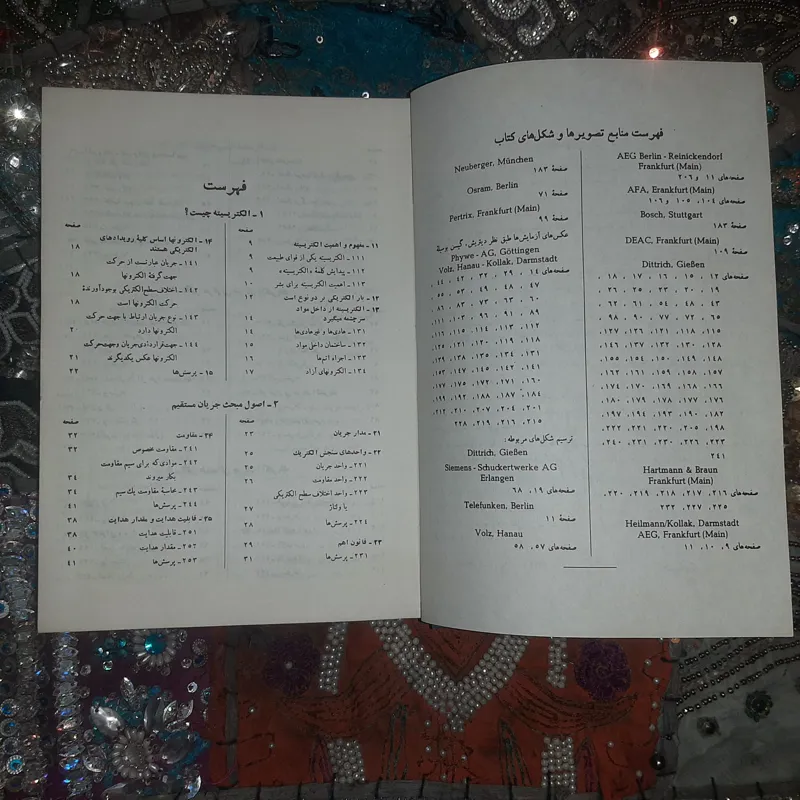 فهرست منابع تصویرها و شکل‌های کتاب
AEG Berlin - Reinickendorf
Frankfurt (Main)
صفحه‌های ۱۱ و ۲۰۶
AFA, Frankfurt (Main)
صفحه‌های ۱۰۴، ۱۰۵ و ۱۰۶
Bosch, Stuttgart
صفحهٔ ۱۸۳
DEAC, Frankfurt (Main)
صفحهٔ ۱۰۹
Dittrich, Gießen
صفحه‌های ۱۲، ۱۵، ۱۶، ۱۷، ۱۸،
۱۹، ۲۰، ۲۳، ۲۵، ۲۶، ۳۶،
۴۳، ۴۸، ۵۴، ۶۱، ۶۲،
۶۵، ۷۲، ۷۷، ۹۰، ۹۸،
۱۱۵، ۱۱۸، ۱۲۱، ۱۲۶، ۱۲۷،
۱۲۸، ۱۳۰، ۱۳۲، ۱۳۷، ۱۴۶،
۱۴۸، ۱۴۹، ۱۵۰، ۱۵۴، ۱۵۵،
۱۵۶، ۱۵۷، ۱۵۸، ۱۶۰، ۱۶۸،
۱۷۳، ۱۷۶، ۱۷۷، ۱۷۸، ۱۸۰،
۱۸۲، ۱۹۰، ۱۹۳، ۱۹۴، ۱۹۷،
۱۹۸، ۲۰۵، ۲۲۰، ۲۲۱، ۲۲۲،
۲۲۳، ۲۲۶، ۲۳۰، ۲۳۱، ۲۴۰،
۲۴۱
Hartmann & Braun
Frankfurt (Main)
صفحه‌های ۲۱۶، ۲۱۷، ۲۱۸، ۲۱۹، ۲۲۰،
۲۲۵، ۲۲۷، ۲۳۲
Heilmann/Kollak, Darmstadt
AEG, Frankfurt (Main)
صفحه‌های ۹، ۱۰، ۱۱
Neuberger, München
صفحهٔ ۱۸۳
Osram, Berlin
صفحهٔ ۷۱
Pertrix, Frankfurt (Main)
صفحهٔ ۹۹
عکس‌های آزمایش‌ها طبق نظر دیتریش، گیسن بوسیلهٔ
Phywe - AG, Göttingen
Volz, Hanau - Kollak, Darmstadt
صفحه‌های ۱۴، ۲۹، ۳۲، ۴۲، ۴۴،
۴۷، ۴۸، ۴۹، ۵۳، ۵۵،
۶۰، ۶۳، ۷۳، ۸۲، ۸۶،
۸۹، ۹۱، ۹۶، ۱۰۳، ۱۱۱،
۱۱۲، ۱۱۳، ۱۱۴، ۱۱۵، ۱۱۶،
۱۳۱، ۱۳۴، ۱۳۵، ۱۳۸، ۱۳۹،
۱۴۱، ۱۴۴، ۱۴۷، ۱۵۲، ۱۵۳،
۱۶۰، ۱۷۱، ۱۷۲، ۱۷۵، ۱۷۷،
۱۸۴، ۱۸۷، ۱۸۸، ۱۹۲، ۱۹۹،
۲۰۱، ۲۰۴، ۲۰۷، ۲۱۱، ۲۱۲،
۲۱۵، ۲۱۶، ۲۲۸
ترسیم شکل‌های مربوطه:
Dittrich, Gießen
Siemens - Schuckertwerke AG
Erlangen
صفحه‌های ۱۹، ۶۸
Telefunken, Berlin
صفحهٔ ۱۱
Volz, Hanau
صفحه‌های ۵۷، ۵۸
فهرست
۱ ـ الکتریسیته چیست؟
صفحه
۱۱ ـ مفهوم و اهمیت الکتریسیته ۹
۱۱۱ ـ الکتریسیته یکی از قوای طبیعت ۹
۱۱۲ ـ پیدایش کلمهٔ «الکتریسیته» ۹
۱۱۳ ـ اهمیت الکتریسیته برای بشر ۱۰
۱۲ ـ بار الکتریکی بر دو نوع است ۱۲
۱۳ ـ الکتریسیته از داخل مواد
سرچشمه میگیرد ۱۴
۱۳۱ ـ هادی‌ها و غیرهادی‌ها ۱۴
۱۳۲ ـ ساختمان داخل مواد ۱۵
۱۳۳ ـ اجزاء اتم‌ها ۱۶
۱۳۴ ـ الکترونهای آزاد ۱۷
صفحه
۱۴ ـ الکترونها اساس کلیهٔ رویدادهای
الکتریکی هستند ۱۸
۱۴۱ ـ جریان عبارتست از حرکت
جهت گرفتهٔ الکترونها ۱۸
۱۴۲ ـ اختلاف‌سطح‌الکتریکی بوجودآورندهٔ
حرکت الکترونها است ۱۸
۱۴۳ ـ نوع جریان ارتباط با جهت حرکت
الکترونها دارد ۲
۱۴۴ ـ جهت‌قراردادی‌جریان وجهت‌حرکت
الکترونها عکس یکدیگرند ۲۱
۱۵ ـ پرسش‌ها ۲۲
۲ ـ اصول مبحث جریان مستقیم
صفحه
۲۱ ـ مدار جریان ۲۳
۲۲ ـ واحدهای سنجش الکتریک ۲۵
۲۲۱ ـ واحد جریان ۲۵
۲۲۲ ـ واحد مقاومت ۲۶
۲۲۳ ـ واحد اختلاف سطح الکتریکی
یا ولتاژ ۲۷
۲۲۴ ـ پرسش‌ها ۲۸
۲۳ ـ قانون اهم ۲۹
۲۳۱ ـ پرسش‌ها ۳۱
صفحه
۲۴ ـ مقاومت ۳۲
۲۴۱ ـ مقاومت مخصوص ۳۲
۲۴۲ ـ موادی‌که برای سیم مقاومت
بکار میروند ۳۴
۲۴۳ ـ محاسبهٔ مقاومت یك سیم ۳۴
۲۴۴ ـ پرسش‌ها ۴۱
۲۵ ـ قابلیت هدایت و مقدار هدایت ۳۸
۲۵۱ ـ قابلیت هدایت ۳۸
۲۵۲ ـ مقدار هدایت ۴۰
۲۵۳ ـ پرسش‌ها ۴۱